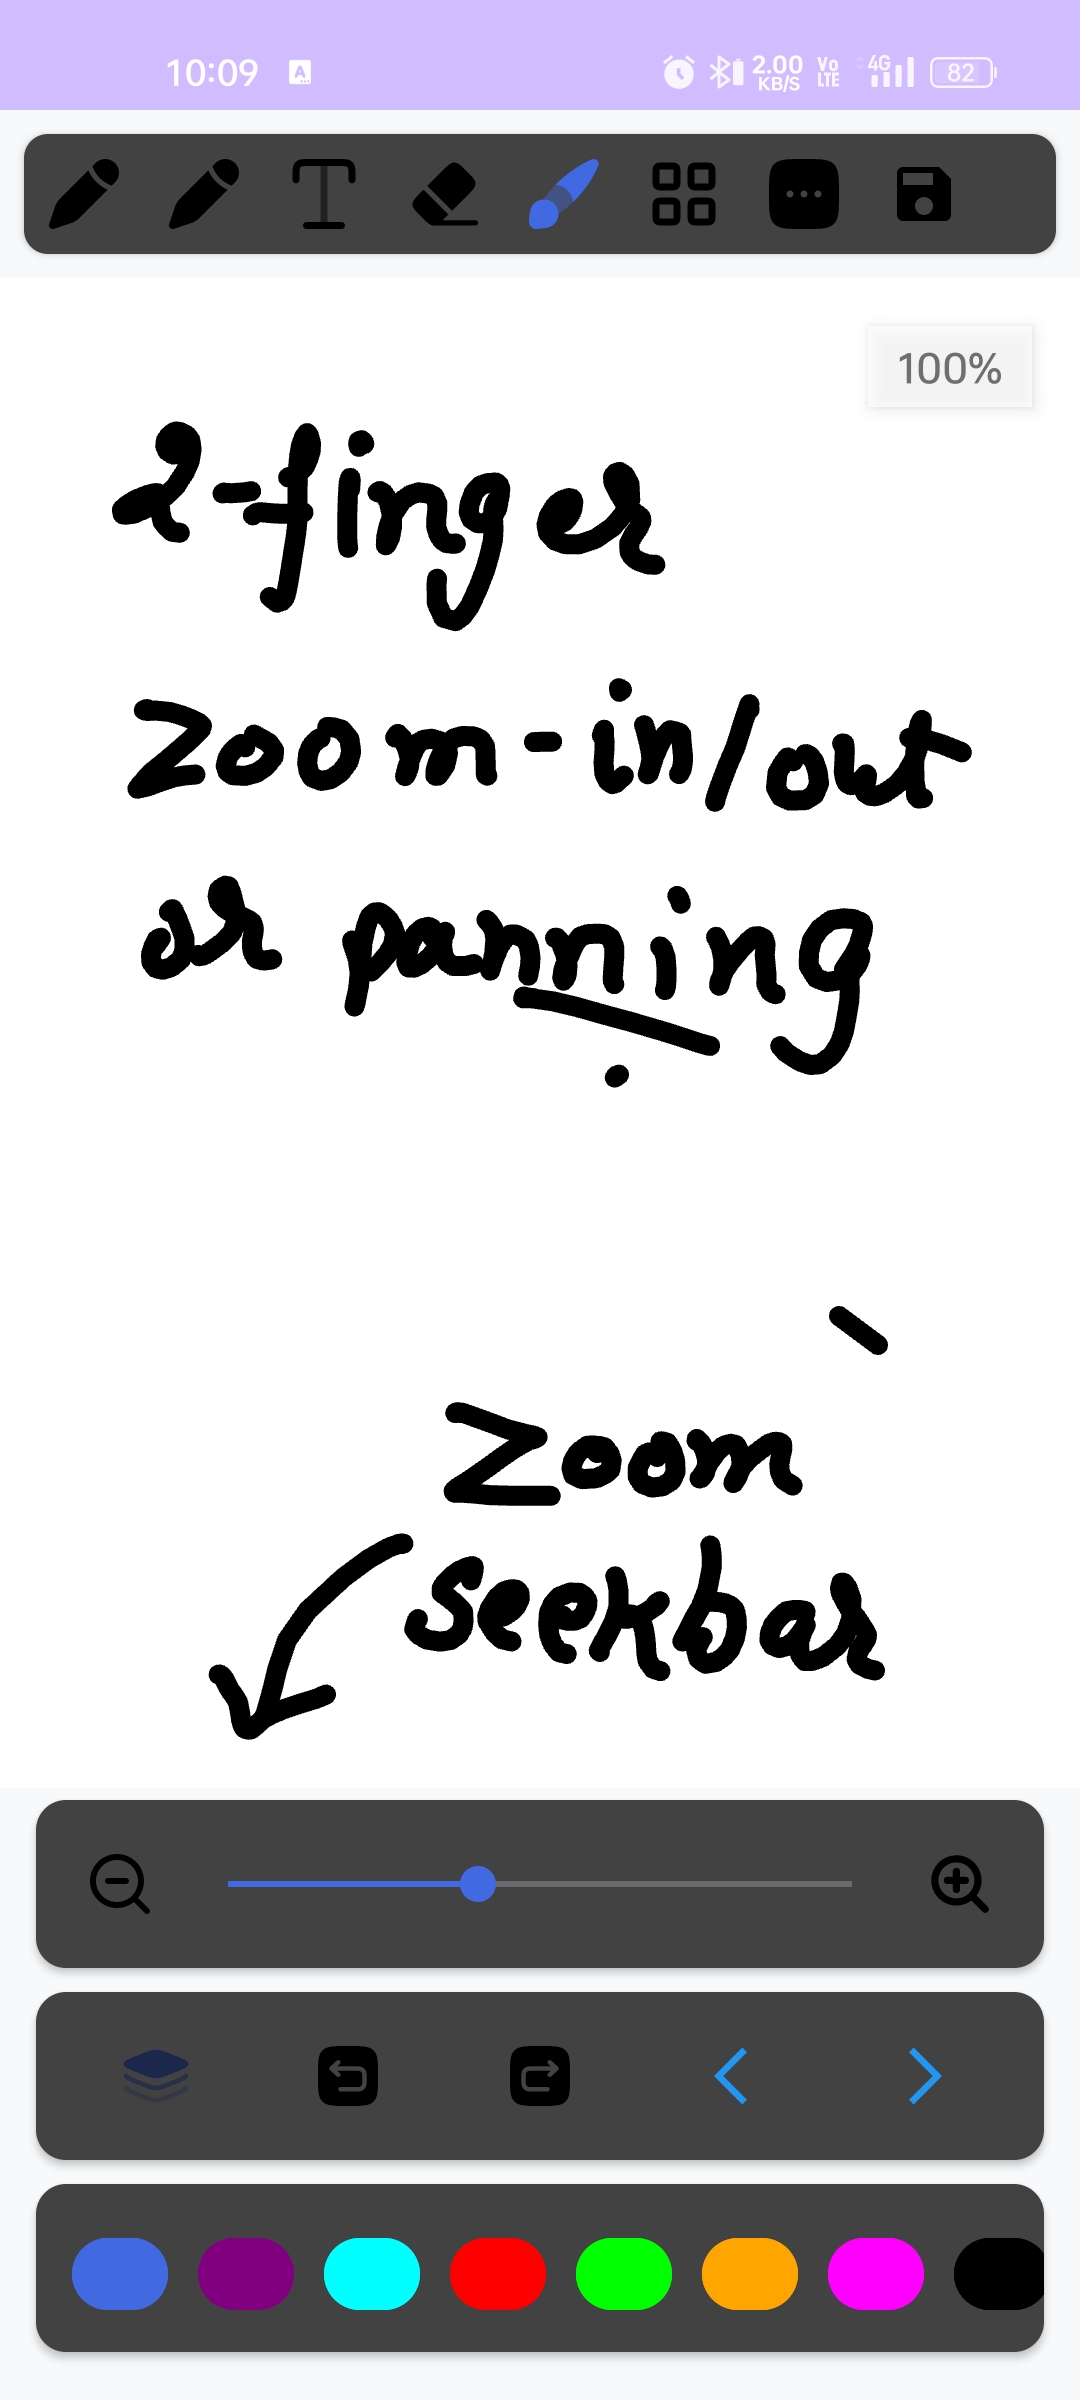 10:09 A 2.00 KB/S Vo LTE 4G 82
100%
2-finger
Zoom-in/out
or panning
Zoom
seekbar